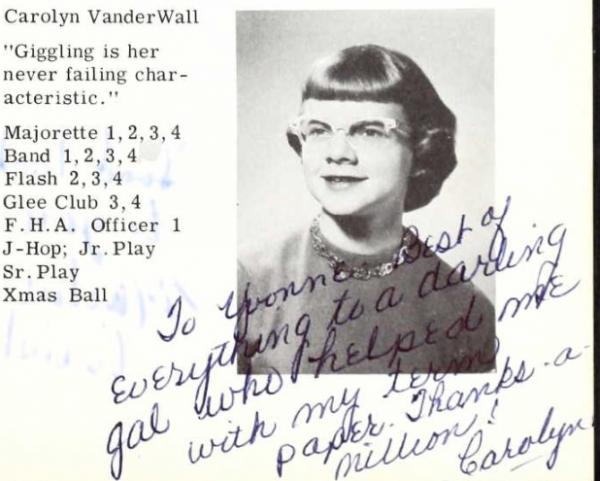 Carolyn VanderWall
"Giggling is her
never failing char-
acteristic."
Majorette 1,2,3,4
Band 1,2,3,4
Flash 2,3,4
Glee Club 3,4
F.H.A. Officer 1
J-Hop; Jr. Play
Sr. Play
Xmas Ball
To Yvonne Best of
everything to a darling
gal who helped me
with my term
paper. Thanks-a-
million!
Carolyn